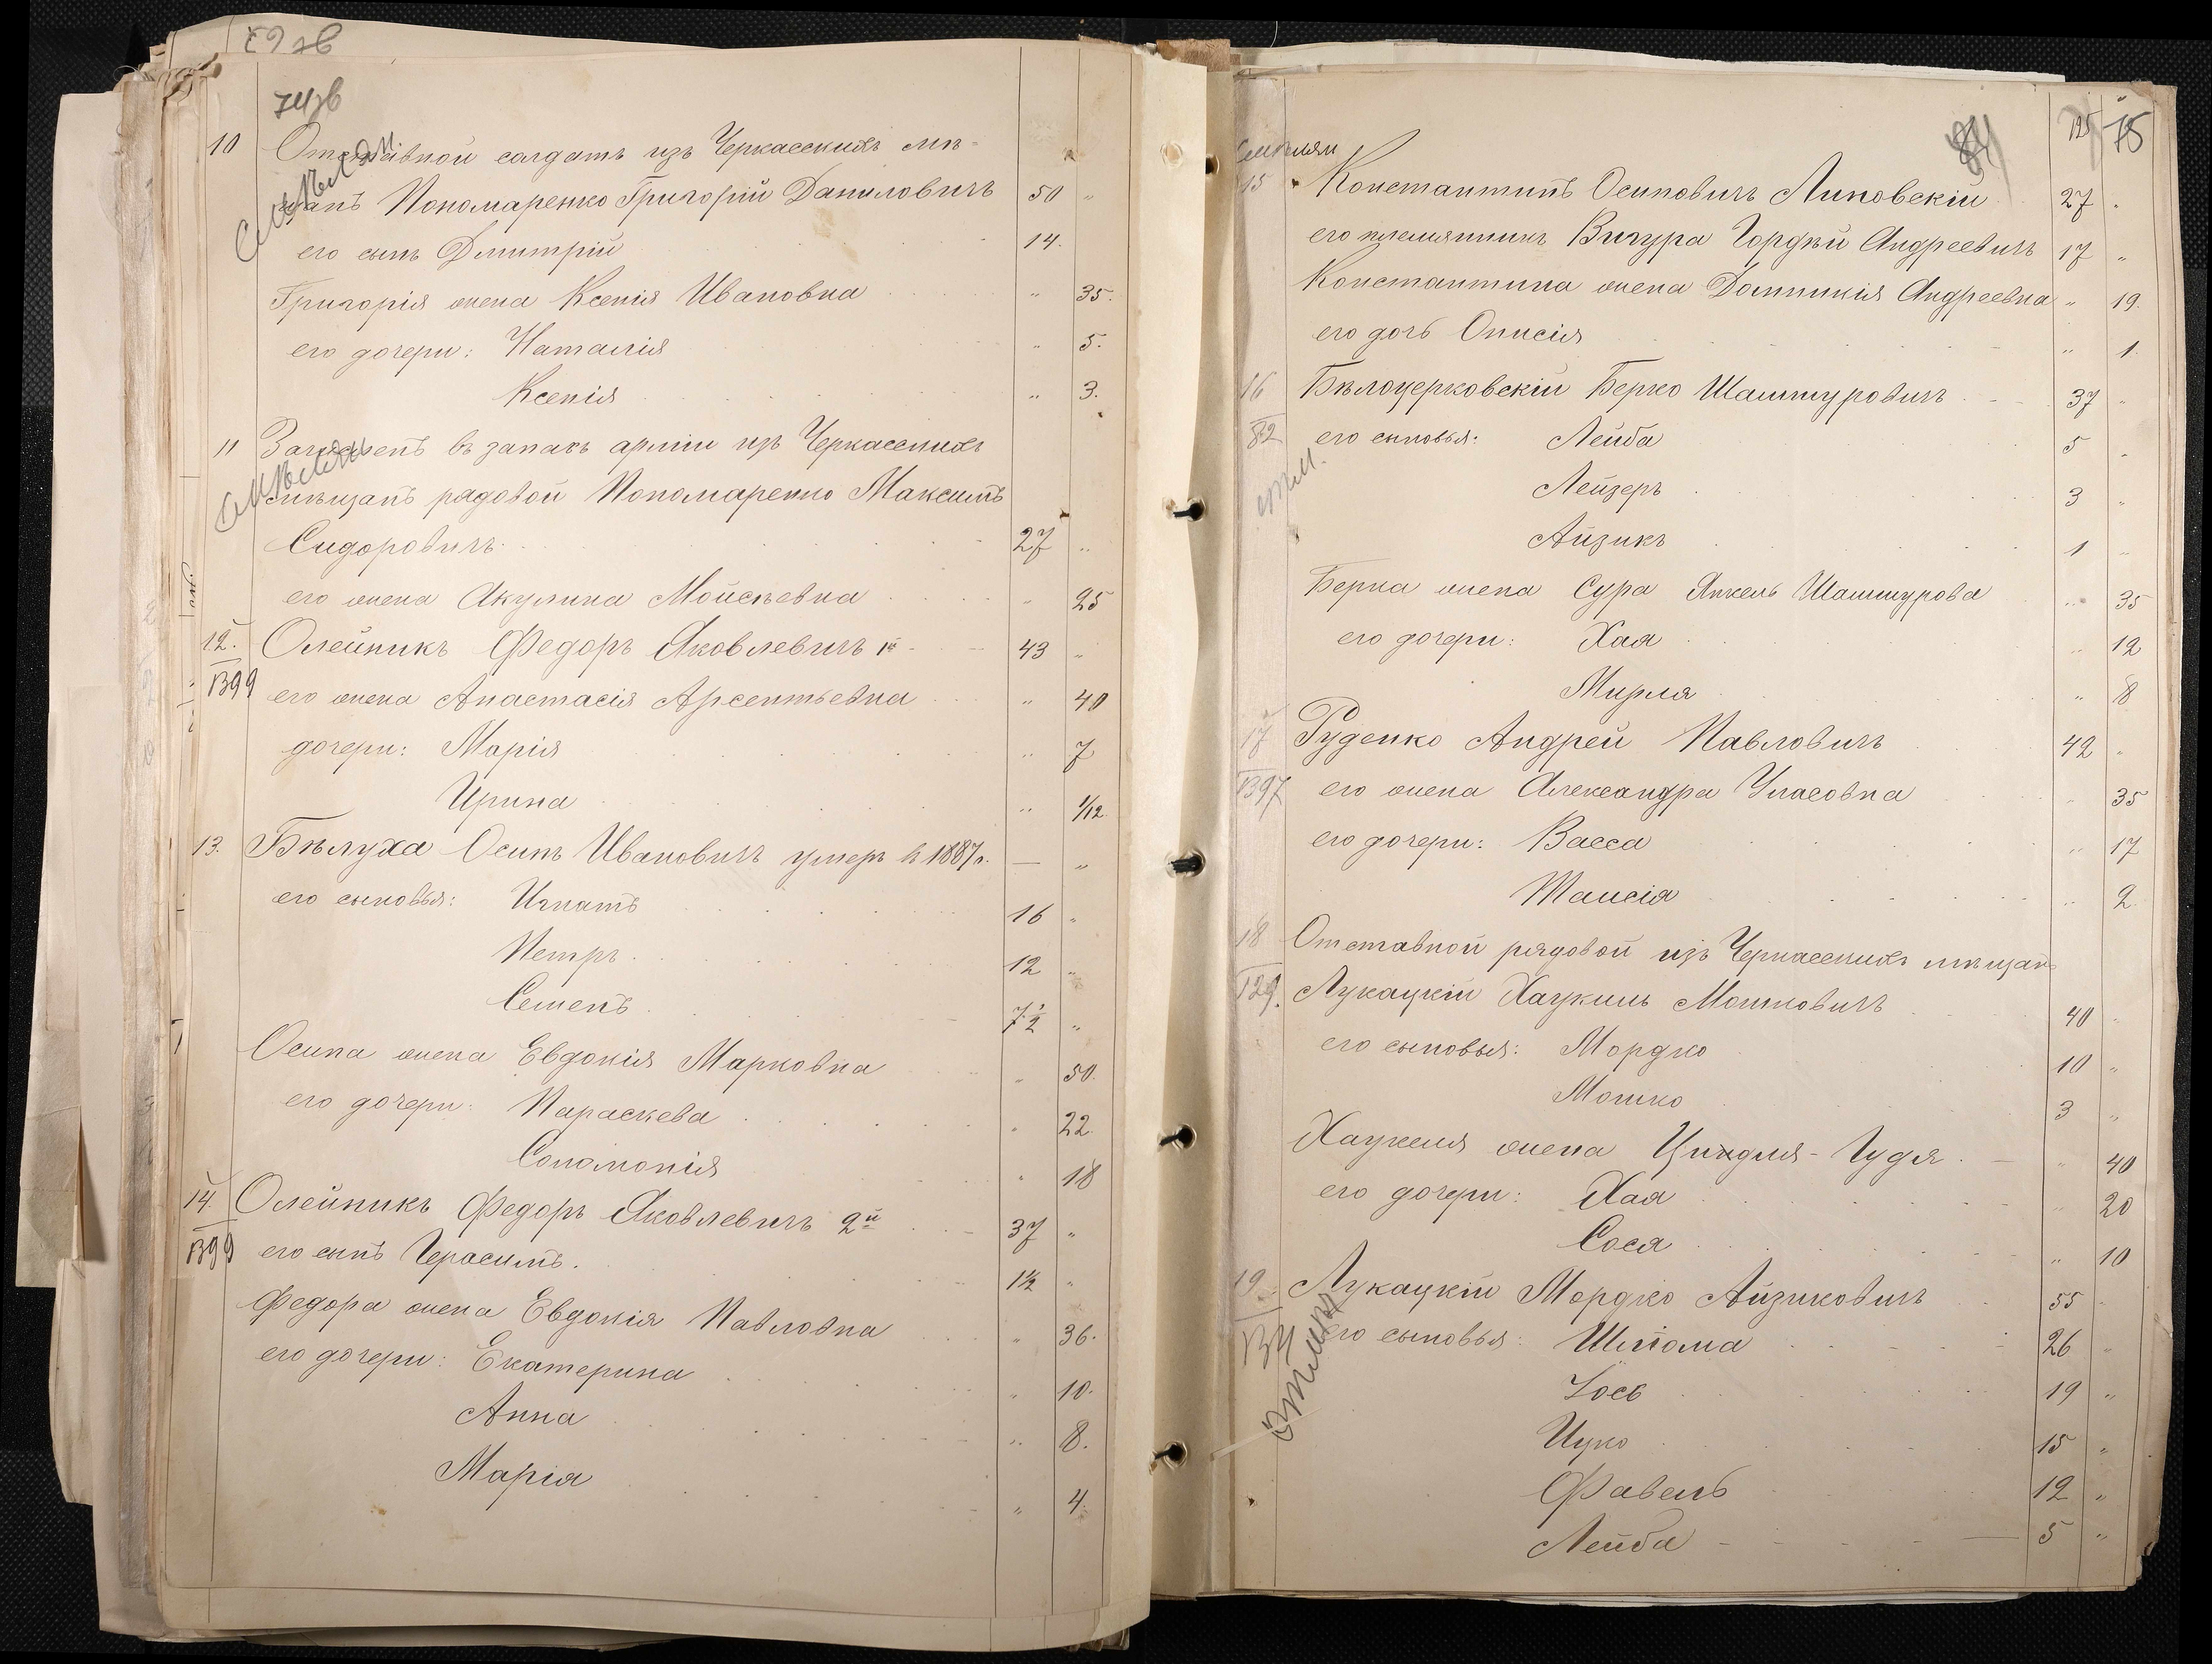 74зв
10 Отставной солдатъ изъ Черкасскихъ мѣ-
щанъ Пономаренко Григорій Даниловичъ 50 "
его сынъ Дмитрій 14.
Григорія жена Ксенія Ивановна " 35.
его дочери: Наталія " 5.
Ксенія " 3.
11 Зачисленъ въ запасъ арміи изъ Черкасскихъ
мѣщанъ рядовой Пономаренко Максимъ
Сидоровичъ 27 "
его жена Акулина Мойсѣевна " 25
12. Олейникъ Федоръ Яковлевичъ 1й 43 "
В99 его жена Анастасія Арсентьевна " 40
дочери: Марія " 7
Ирина " 1/12
13. Бѣлуха Осипъ Ивановичъ умеръ в 1887 г. — "
его сыновья: Игнатъ 16 "
Петръ 12 "
Семенъ 7½ "
Осипа жена Евдокія Марковна " 50.
его дочери: Параскева " 22.
Соломонія " 18
14. Олейникъ Федоръ Яковлевичъ 2й 37 "
В99 его сынъ Герасимъ. 1½ "
Федора жена Евдокія Павловна " 36.
его дочери: Екатерина " 10.
Анна " 8.
Марія " 4.
84 125 75
15 Константинъ Осиповичъ Липовскій 27 "
его племянникъ Вигура Гордѣй Андреевичъ 17 "
Константина жена Домникія Андреевна " 19.
его дочь Онисія " 1.
16 Бѣлоцерковскій Берко Шашмуровичъ 37 "
82 его сыновья: Лейба 5 "
Лейзеръ 3 "
Айзикъ 1 "
Берка жена Сура Янкель Шашмурова " 35
его дочери: Хая " 12
Мирля " 8
17 Руденко Андрей Павловичъ 42 "
В97 его жена Александра Уласовна " 35
его дочери: Васса " 17
Таисія " 2.
18 Отставной рядовой изъ Черкасскихъ мѣщанъ
129. Лукацкій Хацкиль Мошковичъ 40 "
его сыновья: Мордко 10 "
Мошко 3 "
Хацкеля жена Циндля-Гудя " 40
его дочери: Хая " 20
Сося " 10
19. Лукацкій Мордко Айзиковичъ 55 "
его сыновья: Шліома 26 "
Іось 19 "
Ицко 15 "
Фавель 12 "
Лейба 5 "